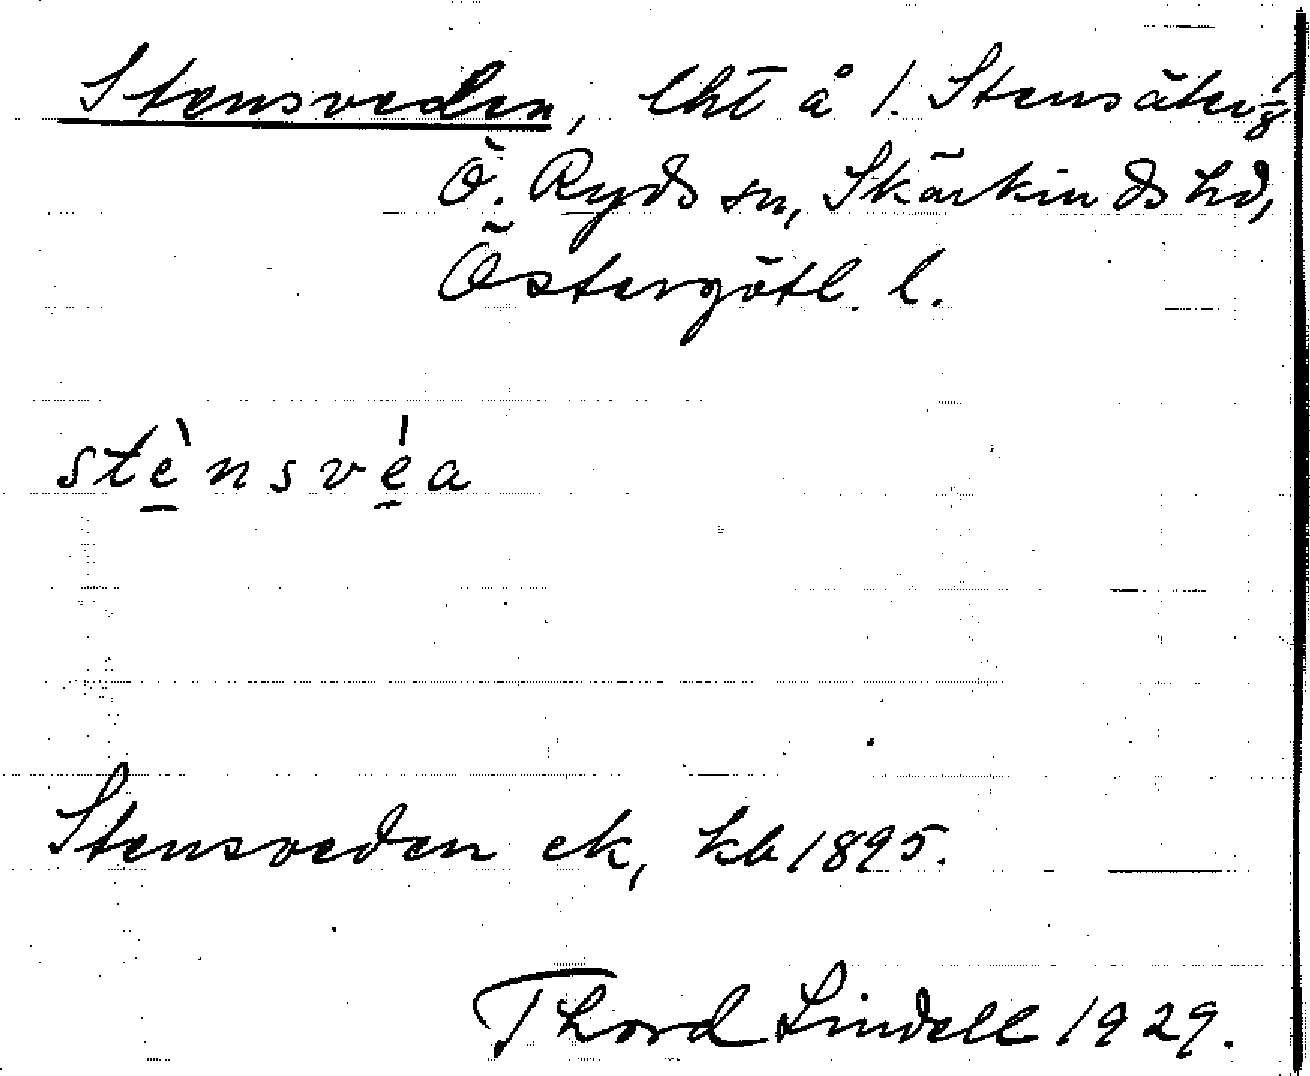 Stensveden, lht å 1. Stensäter,
Ö. Ryds sn, Skärkinds hd,
Östergötl. l.
stè̱nsvé̱a
Stensveden ek, kb 1895.
Thord Lindell 1929.